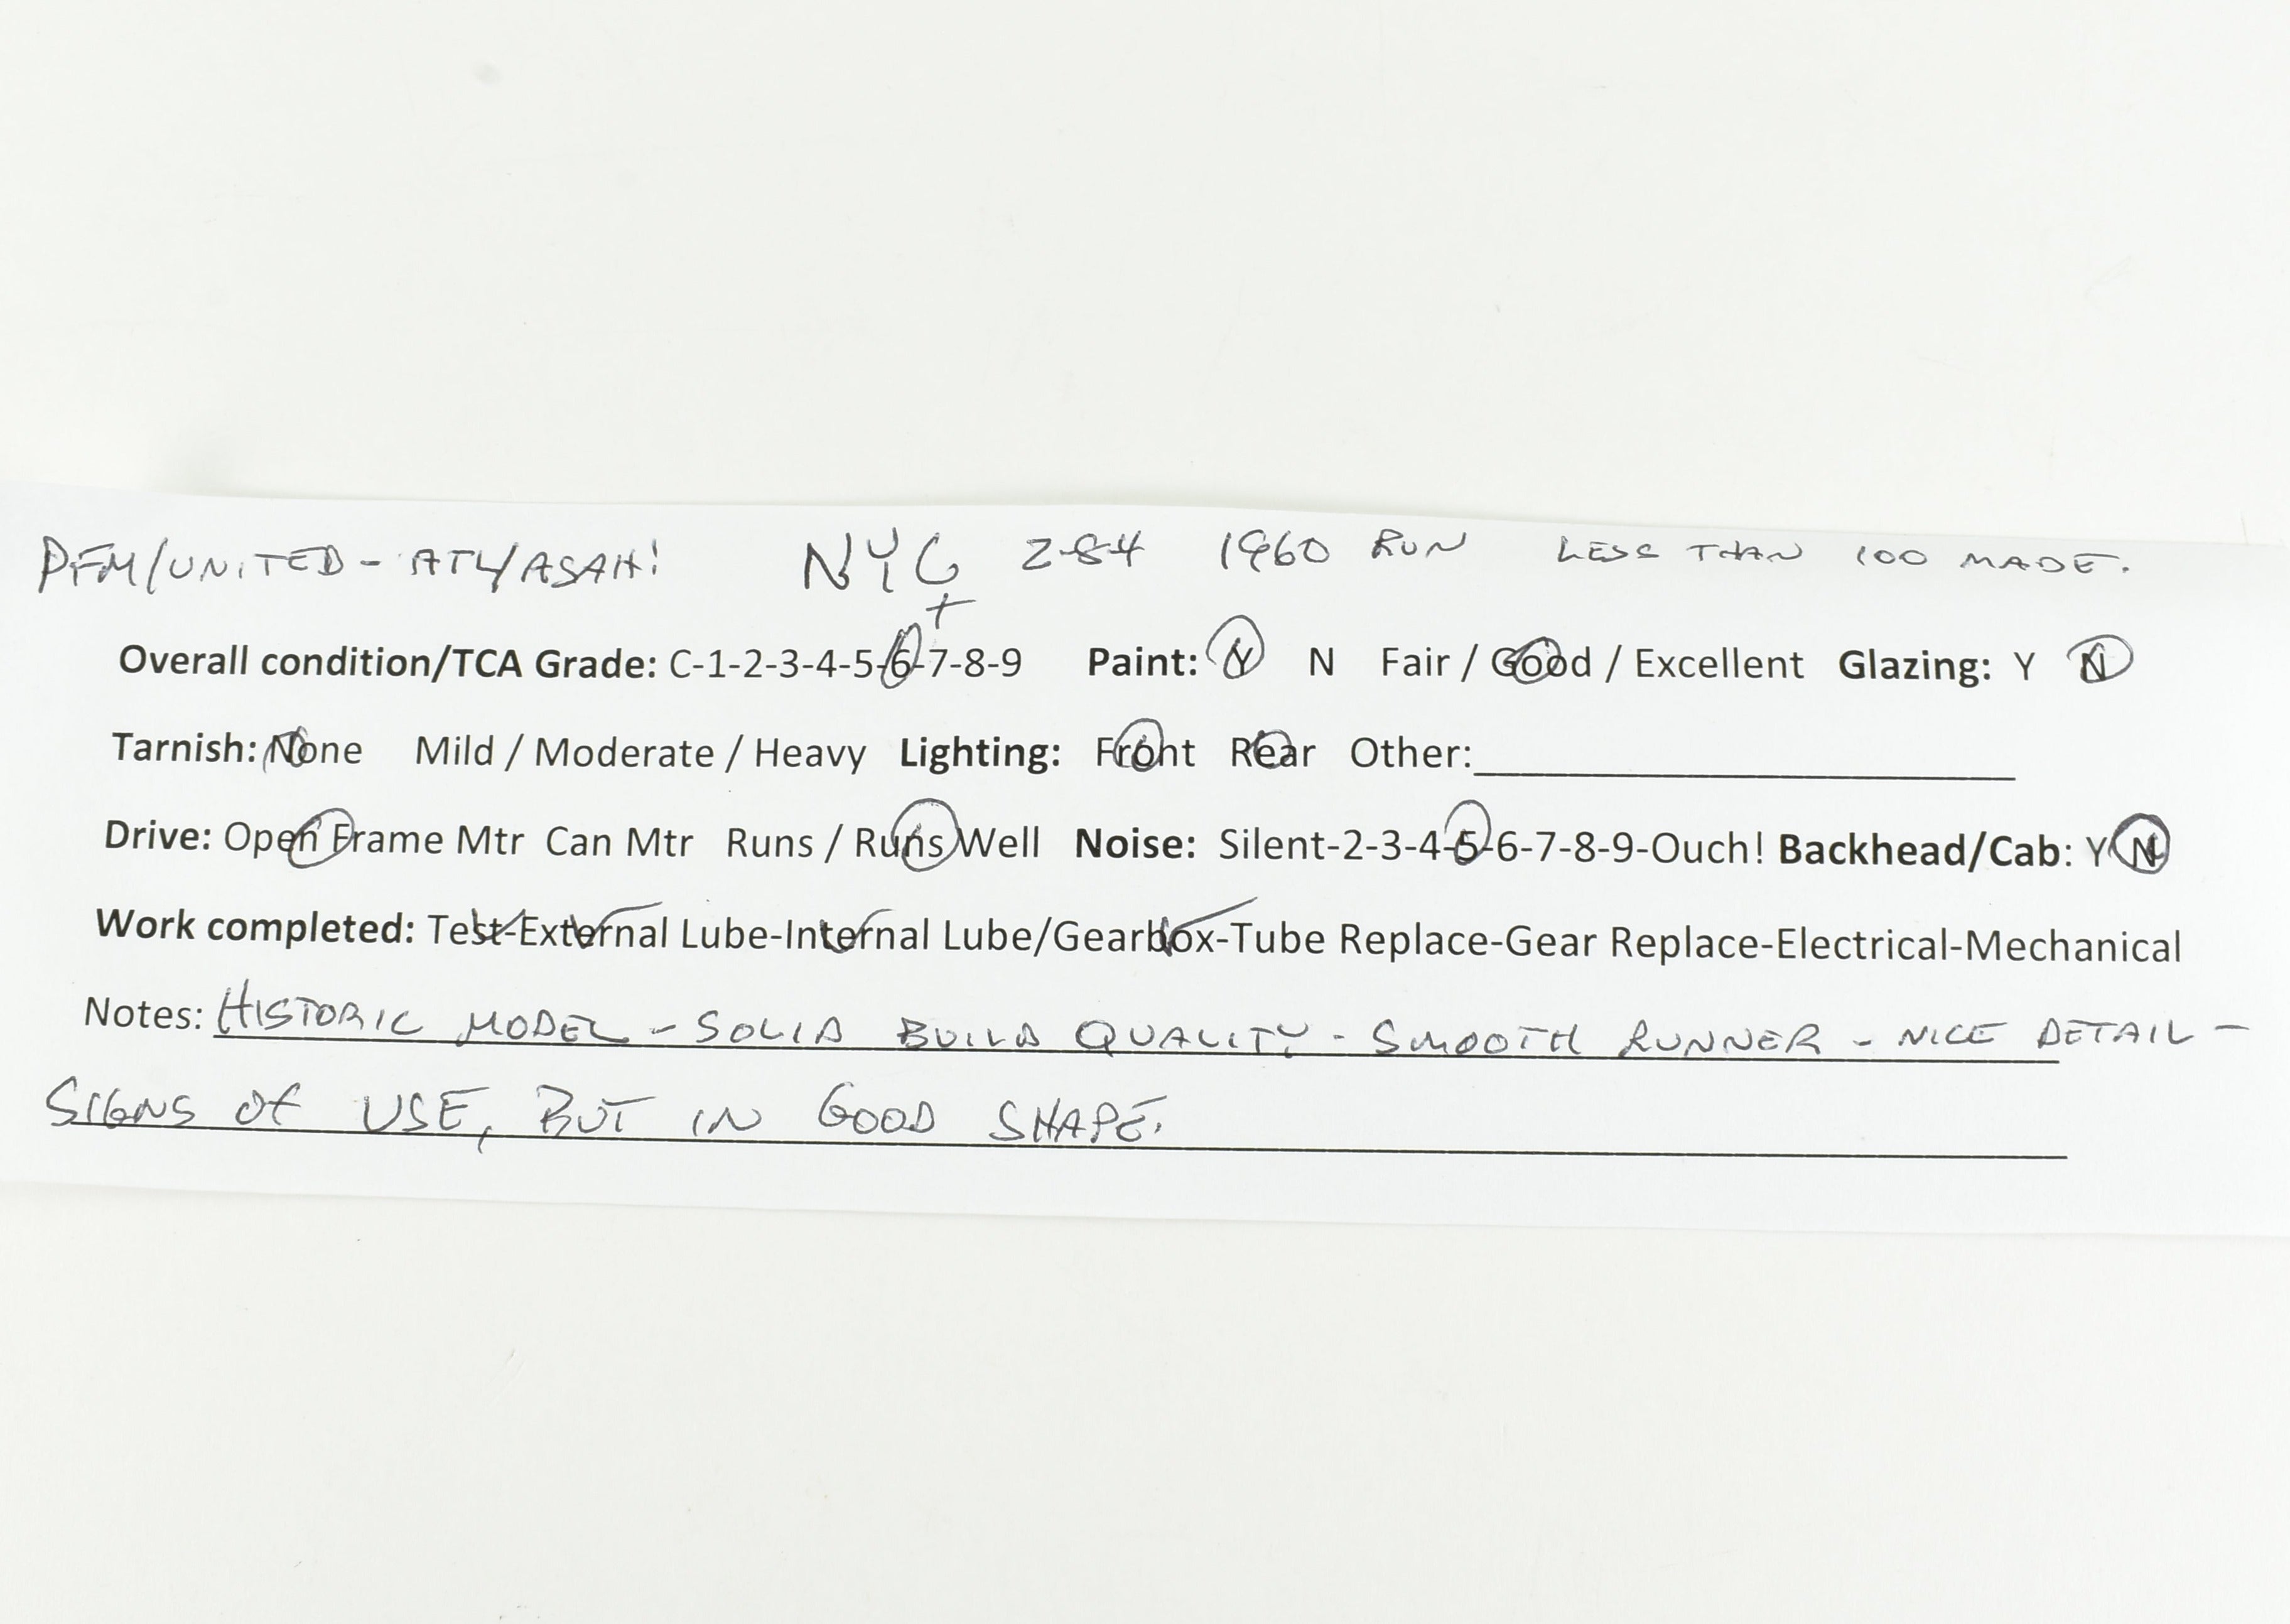 PFM/UNITED - ATL/ASAHI NYC 2-8-4 1960 RUN LESS THAN 100 MADE.
+
Overall condition/TCA Grade: C-1-2-3-4-5-6-7-8-9 Paint: Y N Fair / Good / Excellent Glazing: Y N
Tarnish: None Mild / Moderate / Heavy Lighting: Front Rear Other:
Drive: Open Frame Mtr Can Mtr Runs / Runs Well Noise: Silent-2-3-4-5-6-7-8-9-Ouch! Backhead/Cab: Y N
Work completed: Test-External Lube-Internal Lube/Gearbox-Tube Replace-Gear Replace-Electrical-Mechanical
Notes: HISTORIC MODEL - SOLID BUILD QUALITY - SMOOTH RUNNER - NICE DETAIL -
SIGNS OF USE, BUT IN GOOD SHAPE.